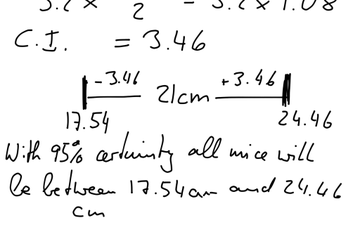 3.2 × 2 = 3.2 × 1.08
C.I. = 3.46
-3.46 21cm +3.46
17.54 24.46
With 95% certainty all mice will
be between 17.54cm and 24.46
cm